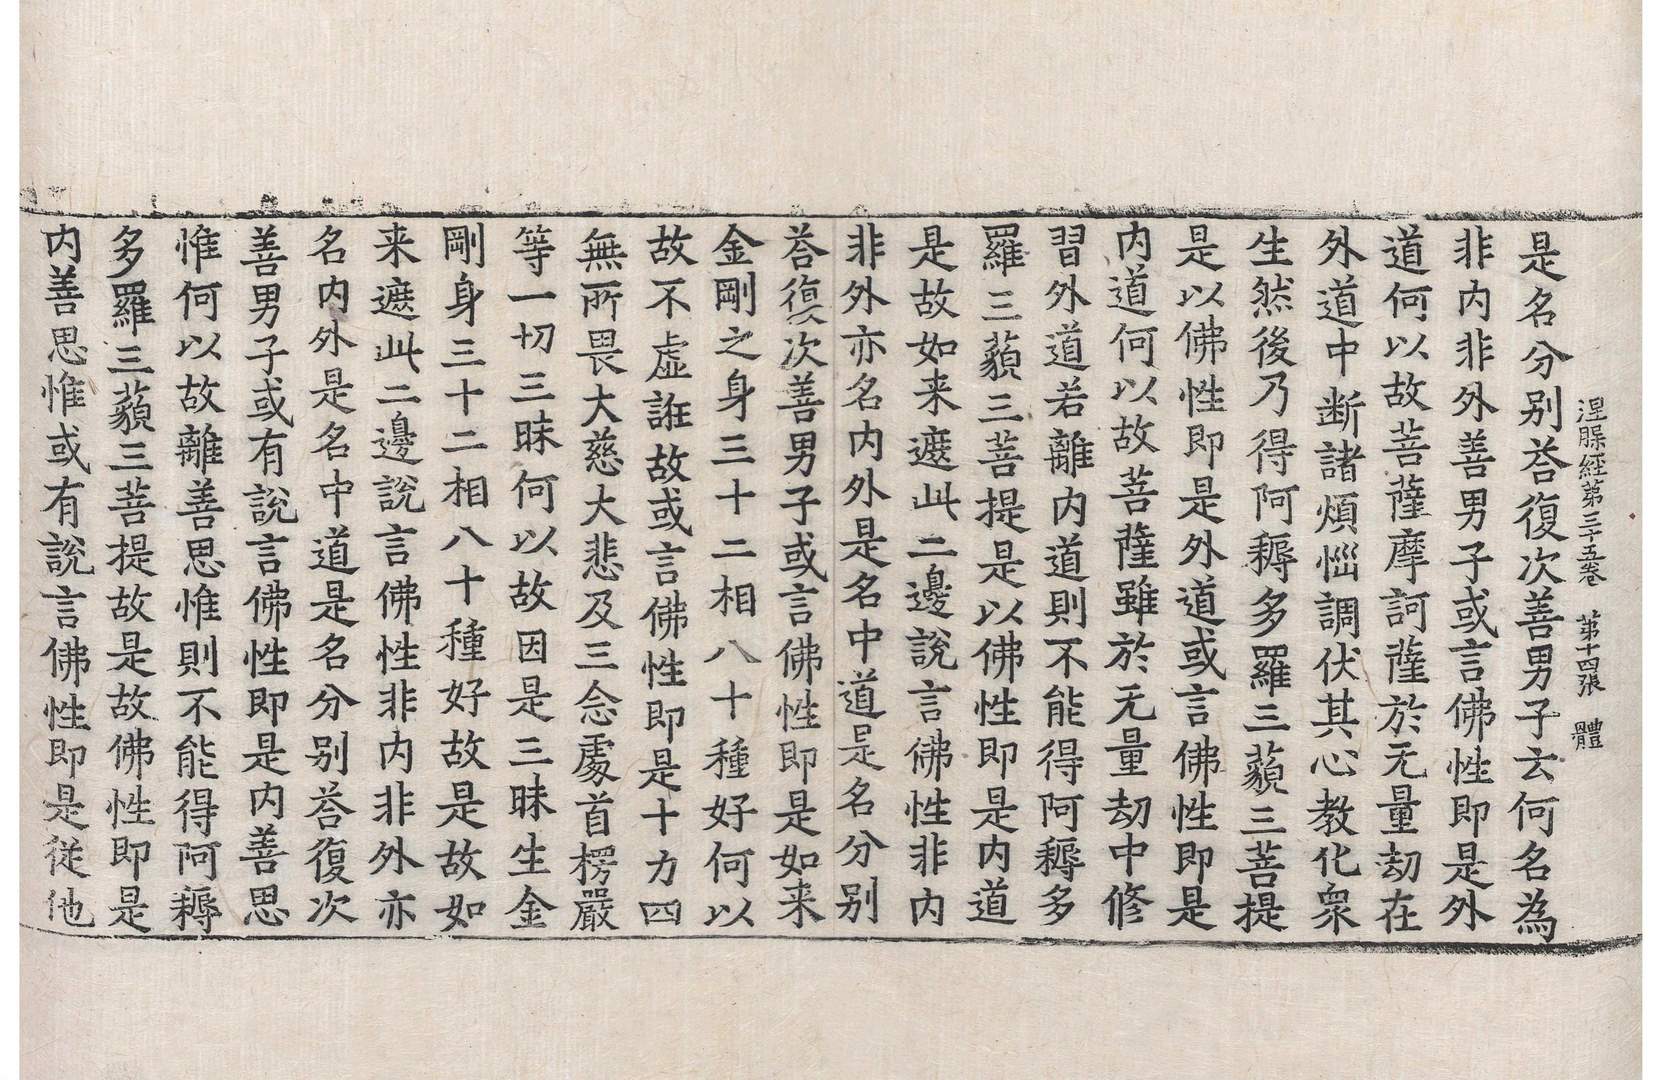 涅槃經第三十五卷　第十四張　體
是名分别荅復次善男子云何名為
非内非外善男子或言佛性即是外
道何以故菩薩摩訶薩於无量劫在
外道中断諸煩惱調伏其心教化衆
生然後乃得阿耨多羅三藐三菩提
是以佛性即是外道或言佛性即是
内道何以故菩薩雖於无量劫中修
習外道若離内道則不能得阿耨多
羅三藐三菩提是以佛性即是内道
是故如来遮此二邊說言佛性非内
非外亦名内外是名中道是名分别
荅復次善男子或言佛性即是如来
金剛之身三十二相八十種好何以
故不虛誑故或言佛性即是十力四
無所畏大慈大悲及三念處首楞嚴
等一切三昧何以故因是三昧生金
剛身三十二相八十種好故是故如
来遮此二邊說言佛性非内非外亦
名内外是名中道是名分别荅復次
善男子或有說言佛性即是内善思
惟何以故離善思惟則不能得阿耨
多羅三藐三菩提故是故佛性即是
内善思惟或有說言佛性即是従他